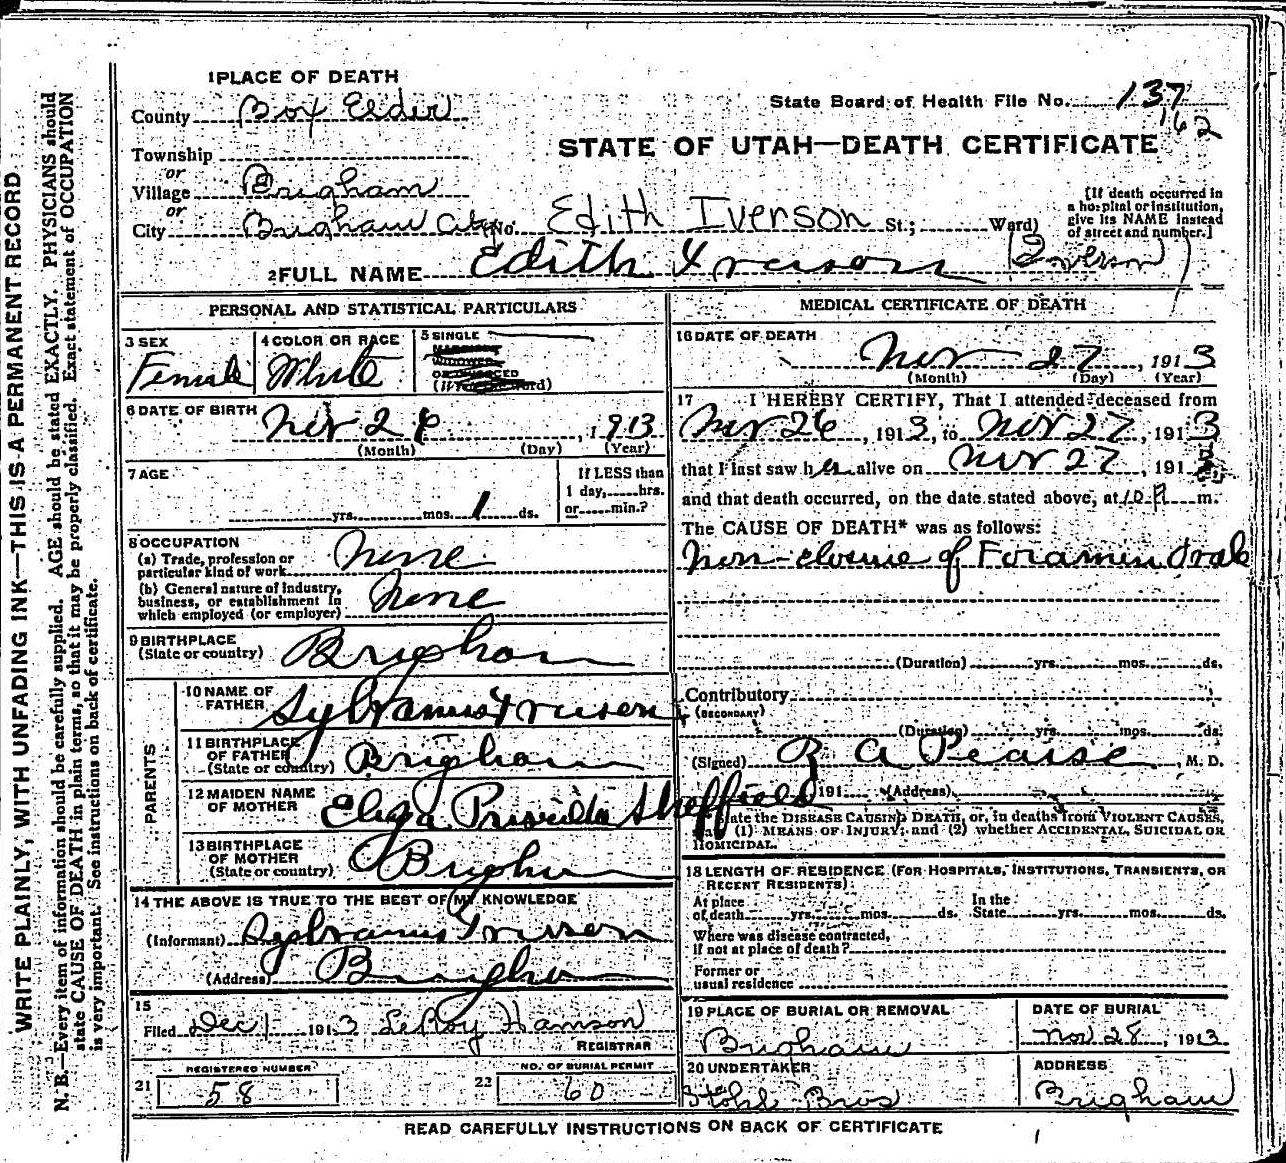 WRITE PLAINLY, WITH UNFADING INK—THIS IS A PERMANENT RECORD
N. B.—Every item of information should be carefully supplied. AGE should be stated EXACTLY. PHYSICIANS should
state CAUSE OF DEATH in plain terms, so that it may be properly classified. Exact statement of OCCUPATION
is very important. See instructions on back of certificate.
1 PLACE OF DEATH
County Box Elder
State Board of Health File No. 137
162
STATE OF UTAH—DEATH CERTIFICATE
Township
or
Village Brigham
or
City Brigham City No. Edith Iverson St.; Ward)
[If death occurred in
a hospital or institution,
give its NAME instead
of street and number.]
2 FULL NAME Edith Iverson (Iverson)
PERSONAL AND STATISTICAL PARTICULARS
3 SEX
Female
4 COLOR OR RACE
White
5 SINGLE
WIDOWED
OR DIVORCED
6 DATE OF BIRTH
Nov 26, 1913
(Month) (Day) (Year)
7 AGE
yrs. mos. 1 ds.
If LESS than
1 day, hrs.
or min.?
8 OCCUPATION
(a) Trade, profession or
particular kind of work None
(b) General nature of industry,
business, or establishment in
which employed (or employer) None
9 BIRTHPLACE
(State or country) Brigham
PARENTS
10 NAME OF
FATHER Sylvanus Iverson
11 BIRTHPLACE
OF FATHER
(State or country) Brigham
12 MAIDEN NAME
OF MOTHER Eliza Priscilla Sheffield
13 BIRTHPLACE
OF MOTHER
(State or country) Brigham
14 THE ABOVE IS TRUE TO THE BEST OF MY KNOWLEDGE
(Informant) Sylvanus Iverson
(Address) Brigham
15
Filed Dec 1 1913 LeRoy Hamson
REGISTRAR
21 REGISTERED NUMBER
58
22 NO. OF BURIAL PERMIT
60
MEDICAL CERTIFICATE OF DEATH
16 DATE OF DEATH
Nov 27, 1913
(Month) (Day) (Year)
17 I HEREBY CERTIFY, That I attended deceased from
Nov 26, 1913, to Nov 27, 1913
that I last saw her alive on Nov 27, 1913,
and that death occurred, on the date stated above, at 10 P m.
The CAUSE OF DEATH* was as follows:
Non-closure of Foramen Ovale
(Duration) yrs. mos. ds.
Contributory
(SECONDARY)
(Duration) yrs. mos. ds.
(Signed) R A Pearse, M. D.
191 (Address)
State the DISEASE CAUSING DEATH, or, in deaths from VIOLENT CAUSES,
(1) MEANS OF INJURY; and (2) whether ACCIDENTAL, SUICIDAL OR
HOMICIDAL.
18 LENGTH OF RESIDENCE (FOR HOSPITALS, INSTITUTIONS, TRANSIENTS, OR
RECENT RESIDENTS)
At place
of death yrs. mos. ds.
In the
State yrs. mos. ds.
Where was disease contracted,
if not at place of death?
Former or
usual residence
19 PLACE OF BURIAL OR REMOVAL
Brigham
DATE OF BURIAL
Nov 28, 1913
20 UNDERTAKER
Stohl Bros
ADDRESS
Brigham
READ CAREFULLY INSTRUCTIONS ON BACK OF CERTIFICATE